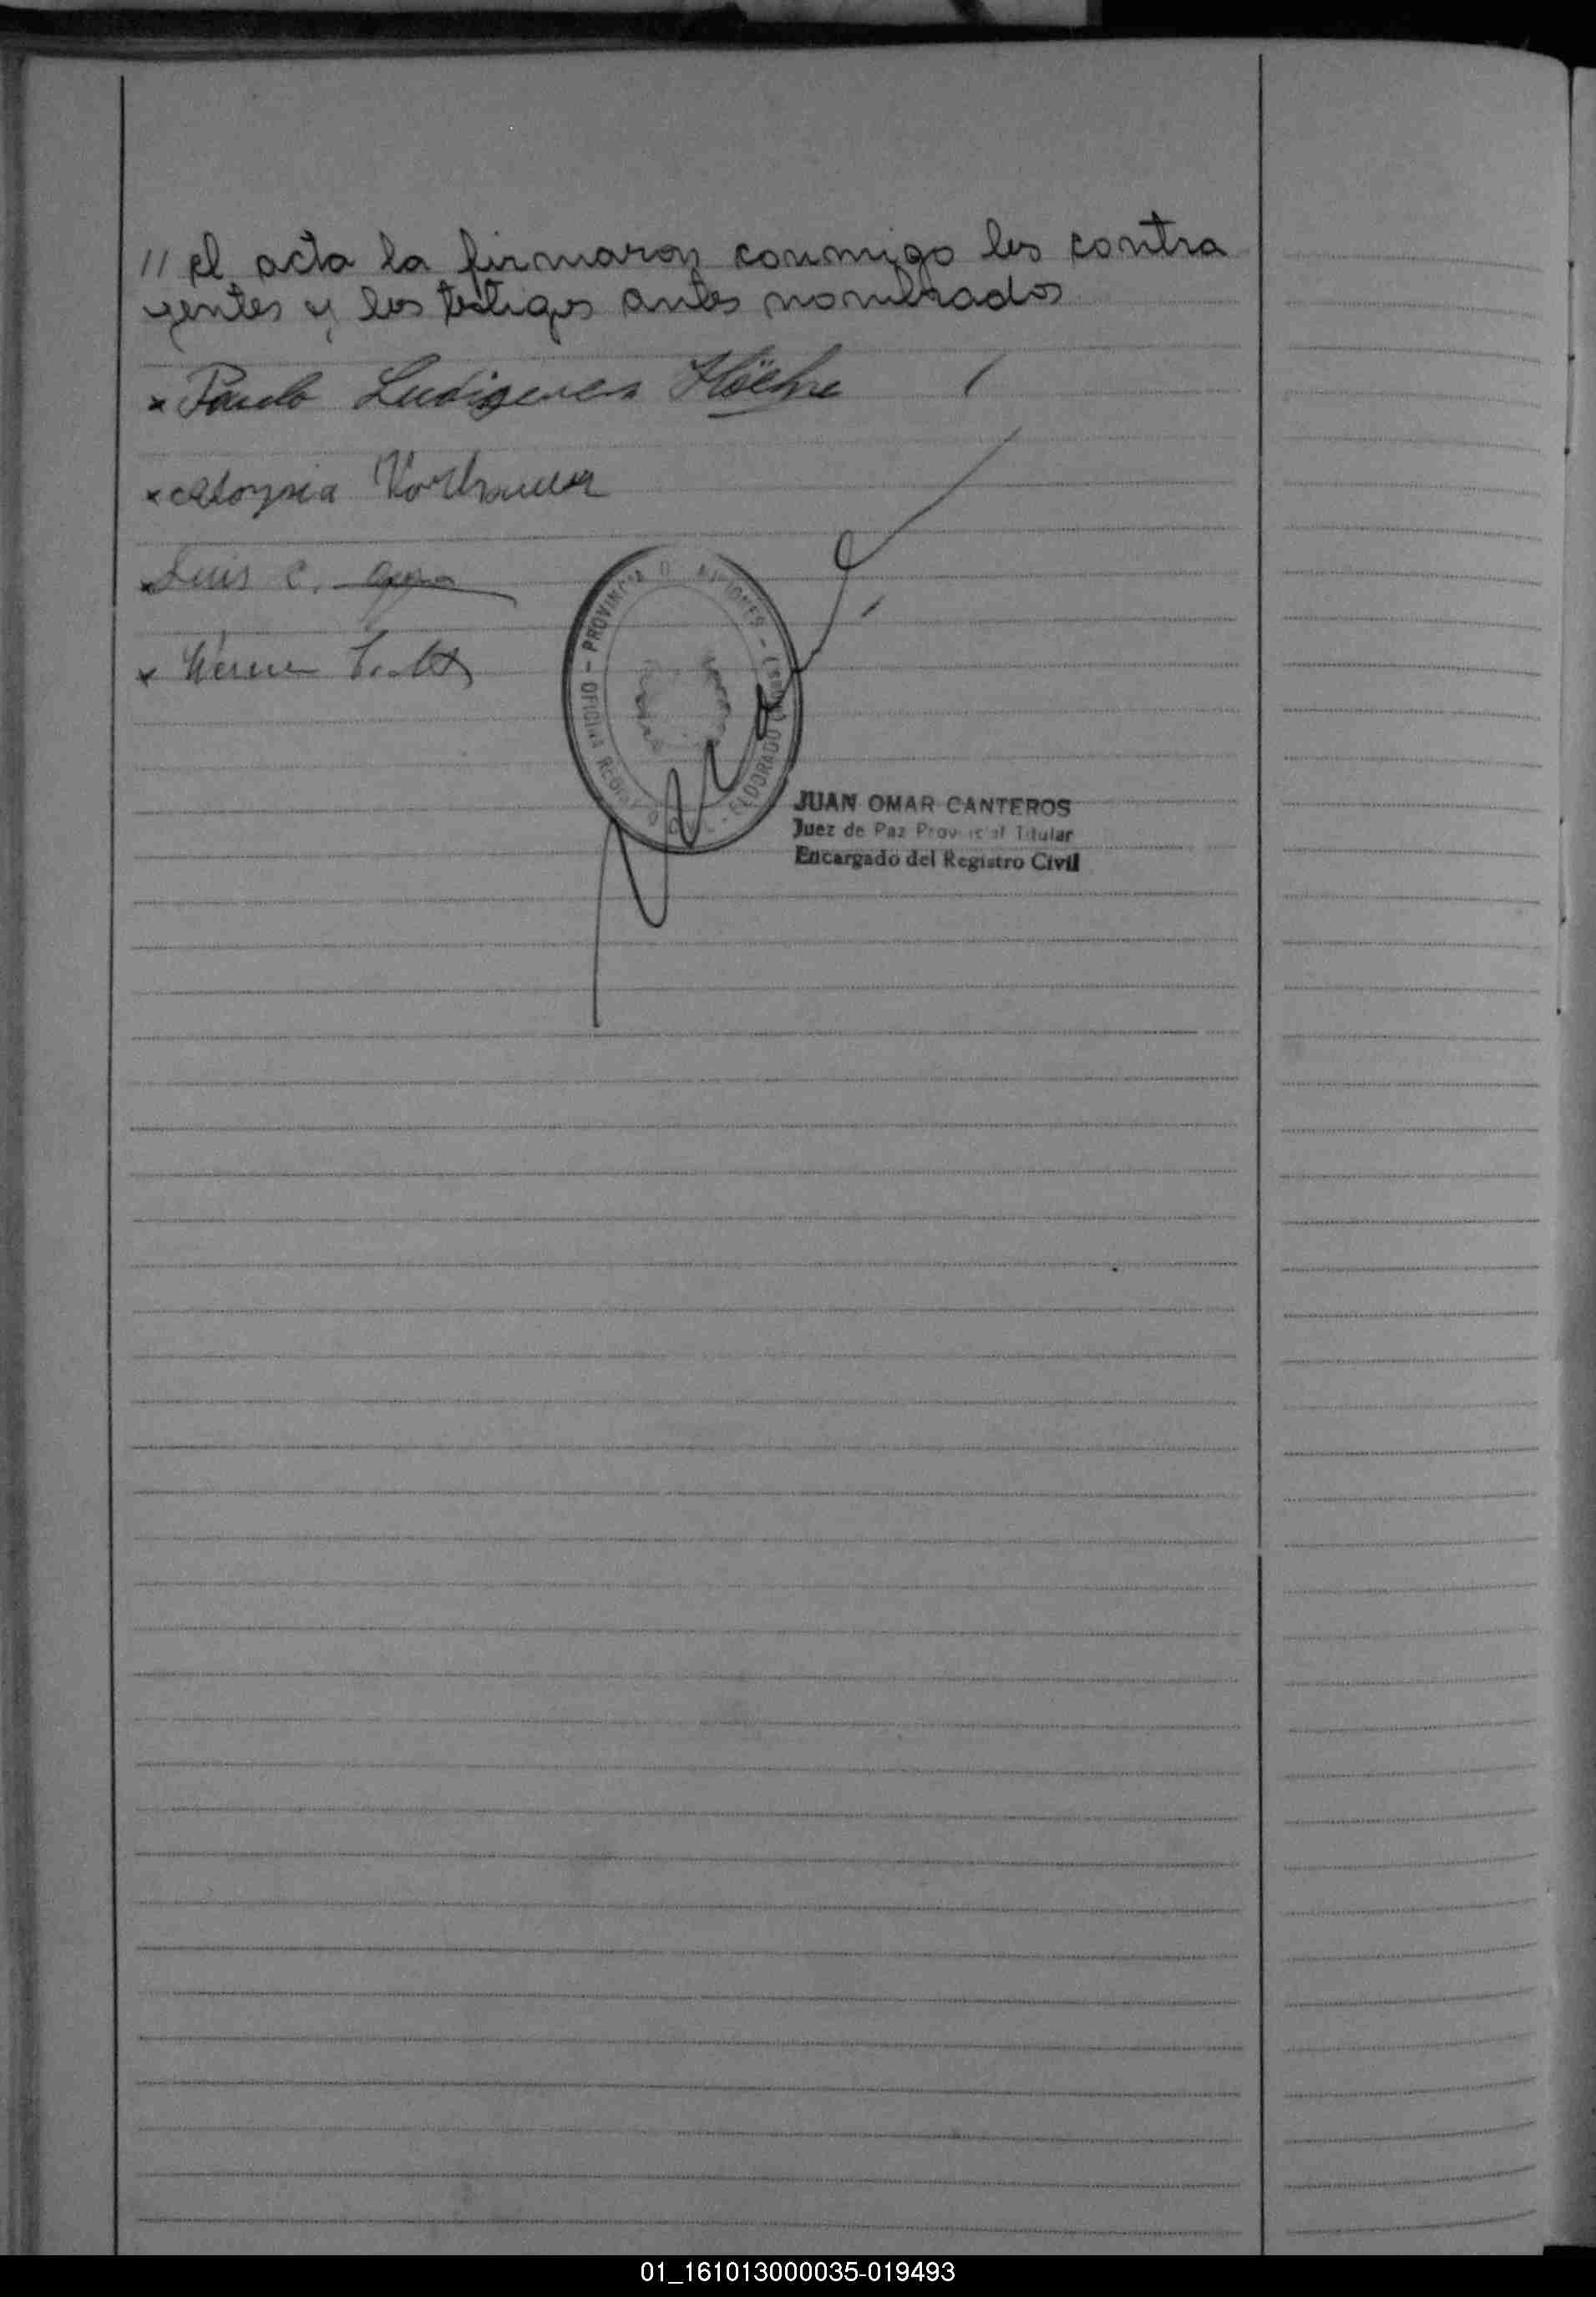 // el acta la firmaron conmigo los contra
yentes y los testigos antes nombrados
x Paulo
x Aloysia
x Luis C.
x Werner
OFICINA REGISTRO CIVIL - ELDORADO (Mnes) - PROVINCIA DE MISIONES -
JUAN OMAR CANTEROS
Juez de Paz Provincial Titular
Encargado del Registro Civil
01_161013000035-019493